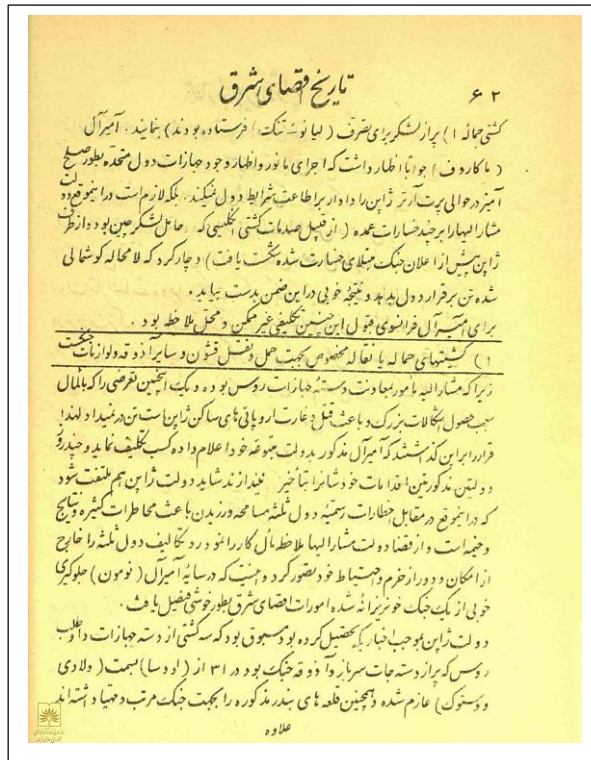 ۶۲
تاریخ اقصای شرق
کشتی حماله ۱) پر از لشکر برای تصرف ( لیائوتنک ) فرستاده بودند) بنمایند . آمیرآل
( ماکاروف ) جوابا اظهار داشت که اجرای مانور و اظهار وجود جهازات دول متحده بطور صلح
آمیز در حوالی پرت آرتر ژاپن را وادار بر اطاعت شرایط دول نمیکند . بلکه لازمست در اینموقع دولت
مشار الیها را بر چند خسارات عمده ( از قبیل صدمات کشتی انگلیسی که حامل لشکر چین بود و از طرف
ژاپن پیش از اعلان جنک مبتلای خسارت شده شکست یافت ) دچار کرد که لامحاله گوشمالی
شده تن بر قرار دول بدهد و نتیجه خوبی در این ضمن بدست بیاید .
برای آمیرآل فرانسوی قبول این چنین تکلیفی غیر ممکن و محل ملاحظه بود .
۱) کشتیهای حماله یا نقاله مخصوص بجهت حمل و نقل قشون و سایر آذوقه و لوازمات جنکست
زیرا که مشار الیه مأمور معاونت دسته جهازات روس بوده و یک اینچنین تعرضی را که بالمال
سبب حصول اشکالات بزرک و باعث قتل و غارت اروپائی های ساکن ژاپن است تن در نمیداد لهذا
قرار را بر این گذاشتند که آمیرآل مذکور بدولت متبوعه خود اعلام داده کسب تکلیف نماید و چند روز
دولتین مذکورتین اقدامات خودشانرا بتأخیر بیندازند شاید دولت ژاپن هم ملتفت شود
که در اینموقع در مقابل اخطارات رسمیه دول ثلثه مسامحه ورزیدن باعث مخاطرات کثیره و نتایج
وخیمه است و از قضا دولت مشار الیها ملاحظه مآل کار را نمود رد تکالیف دول ثلثه را خارج
از امکان و دور از حزم و احتیاط خود تصور کرد و اینست که در سایه آمیرآل ( نومون ) جلوگیری
خوبی از یک جنک خونریزانه شده امورات اقصای شرق بطور خوشی فیصل یافت .
دولت ژاپن بموجب اخباریکه تحصیل کرده بود مسبوق بود که سه کشتی از دسته جهازات داوطلب
روس که پر از دسته جات سرباز و آذوقه جنک بود در ۳۱ از ( اودسا) بسمت ( ولادی
وستوک ) عازم شده و همچنین قلعه های بندر مذکوره را بجهت جنک مرتب و مهیا داشته اند
علاوه